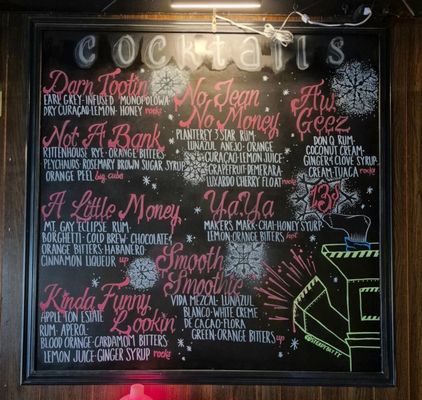 cocktails
Darn Tootin
EARL GREY-INFUSED MONOPOLOWA
DRY CURAÇAO-LEMON-HONEY rocks
Not A Bank
RITTENHOUSE RYE-ORANGE BITTERS
PEYCHAUDS-ROSEMARY BROWN SUGAR SYRUP
ORANGE PEEL big cube
A Little Money
MT. GAY ECLIPSE RUM
BORGHETTI-COLD BREW-CHOCOLATE
ORANGE BITTERS-HABANERO
CINNAMON LIQUEUR up
Kinda Funny
Lookin
APPLETON ESTATE
RUM-APEROL
BLOOD ORANGE-CARDAMOM BITTERS
LEMON JUICE-GINGER SYRUP rocks
No Jean
No Money
PLANTEREY 3 STAR RUM
LUNAZUL AÑEJO-ORANGE
CURAÇAO-LEMON JUICE
GRAPEFRUIT DEMERARA
LUXARDO CHERRY FLOAT rocks
YaYa
MAKERS MARK-CHAI-HONEY SYRUP
LEMON-ORANGE BITTERS hot
Smooth
Smoothie
VIDA MEZCAL-LUNAZUL
BLANCO-WHITE CREME
DE CACAO-FLORA
GREEN-ORANGE BITTERS up
Aw
Geez
DON Q RUM
COCONUT CREAM
GINGER & CLOVE SYRUP
CREAM-TUACA rocks
13$